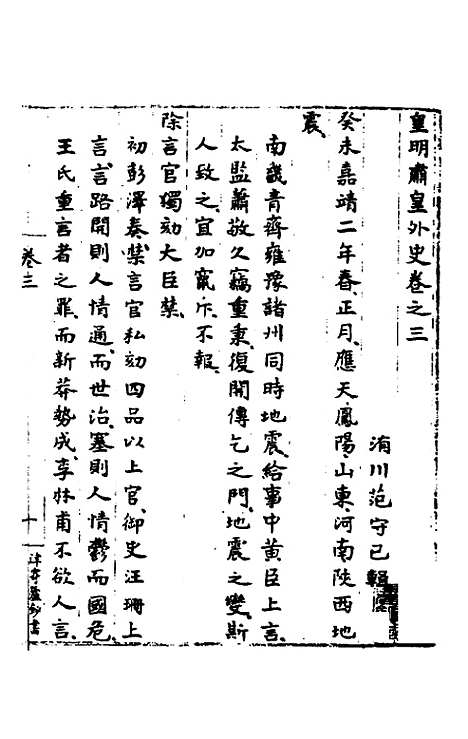 皇明肅皇外史卷之三
洧川范守己輯
癸未嘉靖二年春正月應天鳳陽山東河南陝西地
震
南畿青齊雍豫諸州同時地震給事中黃臣上言
太監蕭敬久竊重秉復開傳乞之門地震之變斯
人致之宜加竄斥不報
除言官獨劾大臣禁
初彭澤奏禁言官私劾四品以上官御史汪珊上
言言路開則人情通而世治塞則人情鬱而國危
王氏重言者之罪而新莽勢成李林甫不欲人言
卷三
十